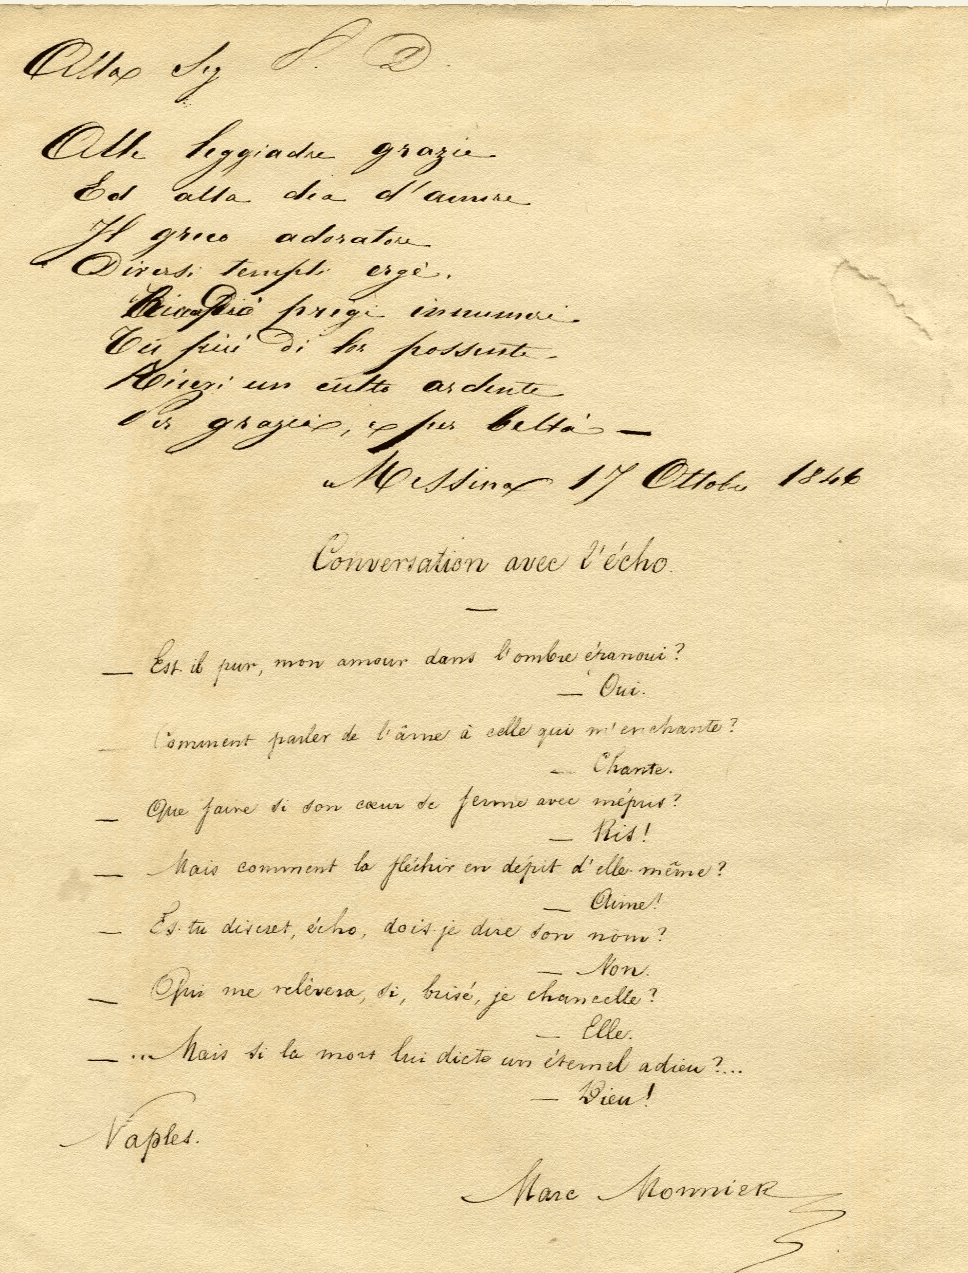 Alla Sig P. D.
Alle leggiadre grazie
Ed alla dea d'amore
Il greco adoratore
Diversi templi ergè.
pregi innumeri
Tu più di lor possente
un culto ardente
Per grazia, e per beltà —
Messina 17 Ottobre 1846
Conversation avec l'écho
—
— Est-il pur, mon amour dans l'ombre évanoui?
— Oui.
— Comment parler de l'âme à celle qui m'enchante?
— Chante.
— Que faire si son cœur se ferme avec mépris?
— Ris!
— Mais comment la fléchir en dépit d'elle-même?
— Aime!
— Es-tu discret, écho, dois-je dire son nom?
— Non.
— Qui me relèvera, si, brisé, je chancelle?
— Elle.
— ... Mais si la mort lui dicte un éternel adieu?...
— Dieu!
Naples.
Marc Monnier